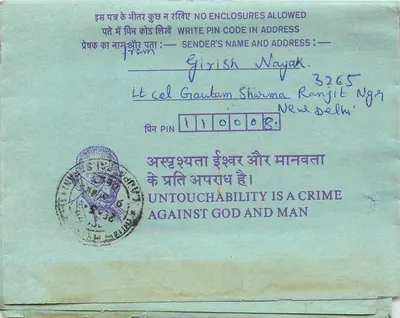 इस पत्र के भीतर कुछ न रखिए NO ENCLOSURES ALLOWED
पते में पिन कोड लिखें WRITE PIN CODE IN ADDRESS
प्रेषक का नाम और पता :— SENDER'S NAME AND ADDRESS :—
from
Girish Nayak
3265
Lt Col Gautam Sharma Ranjit Ngr
New Delhi
पिन PIN 110008
अस्पृश्यता ईश्वर और मानवता
के प्रति अपराध है।
UNTOUCHABILITY IS A CRIME
AGAINST GOD AND MAN